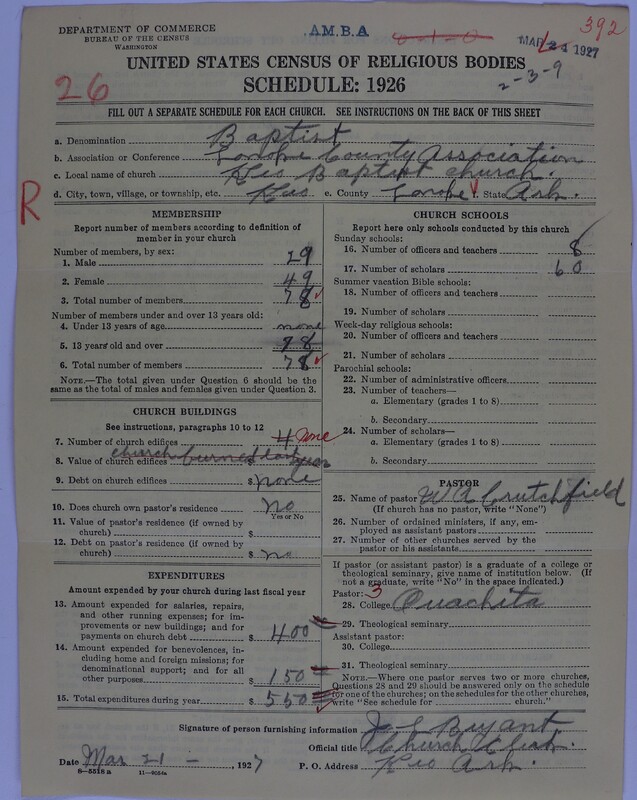 DEPARTMENT OF COMMERCE
BUREAU OF THE CENSUS
WASHINGTON
A.M.B.A
0-1-0
MAR 21 1927
392
UNITED STATES CENSUS OF RELIGIOUS BODIES
SCHEDULE: 1926
26
2-3-9
FILL OUT A SEPARATE SCHEDULE FOR EACH CHURCH. SEE INSTRUCTIONS ON THE BACK OF THIS SHEET
a. Denomination Baptist
b. Association or Conference Lonoke County Association
c. Local name of church Keo Baptist church.
R
d. City, town, village, or township, etc. Keo e. County Lonoke f. State Ark.
MEMBERSHIP
Report number of members according to definition of
member in your church
Number of members, by sex:
1. Male 29
2. Female 49
3. Total number of members 78
Number of members under and over 13 years old:
4. Under 13 years of age none
5. 13 years old and over 78
6. Total number of members 78
NOTE.—The total given under Question 6 should be
the same as the total of males and females given under Question 3.
CHURCH BUILDINGS
See instructions, paragraphs 10 to 12
7. Number of church edifices none
8. Value of church edifices church burned last year
9. Debt on church edifices $ none
10. Does church own pastor's residence No
Yes or No
11. Value of pastor's residence (if owned by
church) $
12. Debt on pastor's residence (if owned by
church) $ no
EXPENDITURES
Amount expended by your church during last fiscal year
13. Amount expended for salaries, repairs,
and other running expenses; for im-
provements or new buildings; and for
payments on church debt $ 400
14. Amount expended for benevolences, in-
cluding home and foreign missions; for
denominational support; and for all
other purposes $ 150
15. Total expenditures during year $ 550
CHURCH SCHOOLS
Report here only schools conducted by this church
Sunday schools:
16. Number of officers and teachers 8
17. Number of scholars 60
Summer vacation Bible schools:
18. Number of officers and teachers
19. Number of scholars
Week-day religious schools:
20. Number of officers and teachers
21. Number of scholars
Parochial schools:
22. Number of administrative officers
23. Number of teachers—
a. Elementary (grades 1 to 8)
b. Secondary
24. Number of scholars—
a. Elementary (grades 1 to 8)
b. Secondary
PASTOR
25. Name of pastor W A Crutchfield
(If church has no pastor, write "None")
26. Number of ordained ministers, if any, em-
ployed as assistant pastors
27. Number of other churches served by the
pastor or his assistants
If pastor (or assistant pastor) is a graduate of a college or
theological seminary, give name of institution below. (If
not a graduate, write "No" in the space indicated.)
Pastor: 3
28. College Ouachita
29. Theological seminary
Assistant pastor:
30. College
31. Theological seminary
NOTE.—Where one pastor serves two or more churches,
Questions 28 and 29 should be answered only on the schedule
for one of the churches; on the schedules for the other churches,
write "See schedule for church."
Signature of person furnishing information Bryant
Official title Church Clerk.
Date Mar 21 - , 1927 P. O. Address Keo Ark.
8—5518 a 11—9054a